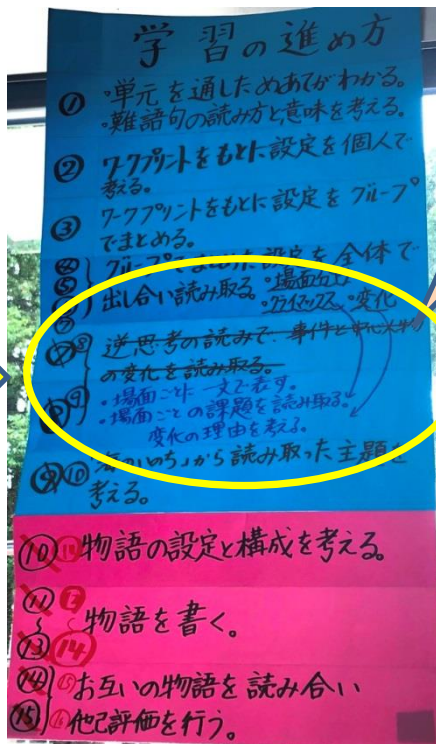 学習の進め方
① ・単元を通しためあてがわかる。
・難語句の読み方と意味を考える。
② ワークプリントをもとに設定を個人で
考える。
③ ワークプリントをもとに設定をグループ
でまとめる。
④ グループでまとめた設定を全体で
⑤ 出し合い読み取る。・場面分け
・クライマックス ・変化
逆思考の読みで、事件と
の変化を読み取る。
・場面ごとに一文で表す。
・場面ごとの課題を読み取る。
変化の理由を考える。
⑨ ⑩ 海のいのち」から読み取った主題を
考える。
⑩ 物語の設定と構成を考える。
⑪
物語を書く。
⑬ ⑭
⑭ ⑮ お互いの物語を読み合い
⑮ ⑯ 他己評価を行う。